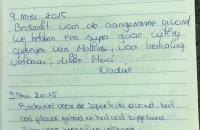 9 mei 2015
Bedankt voor de aangename avond
we hebben een super goeie uitleg
gekregen van Mathias, voor herhaling
vatbaar, dikke Merci.
Nadine
9 Mei 2015
Bedankt voor de superleuke avond, heel
veel plezier gehad en heel veel bijgeleerd